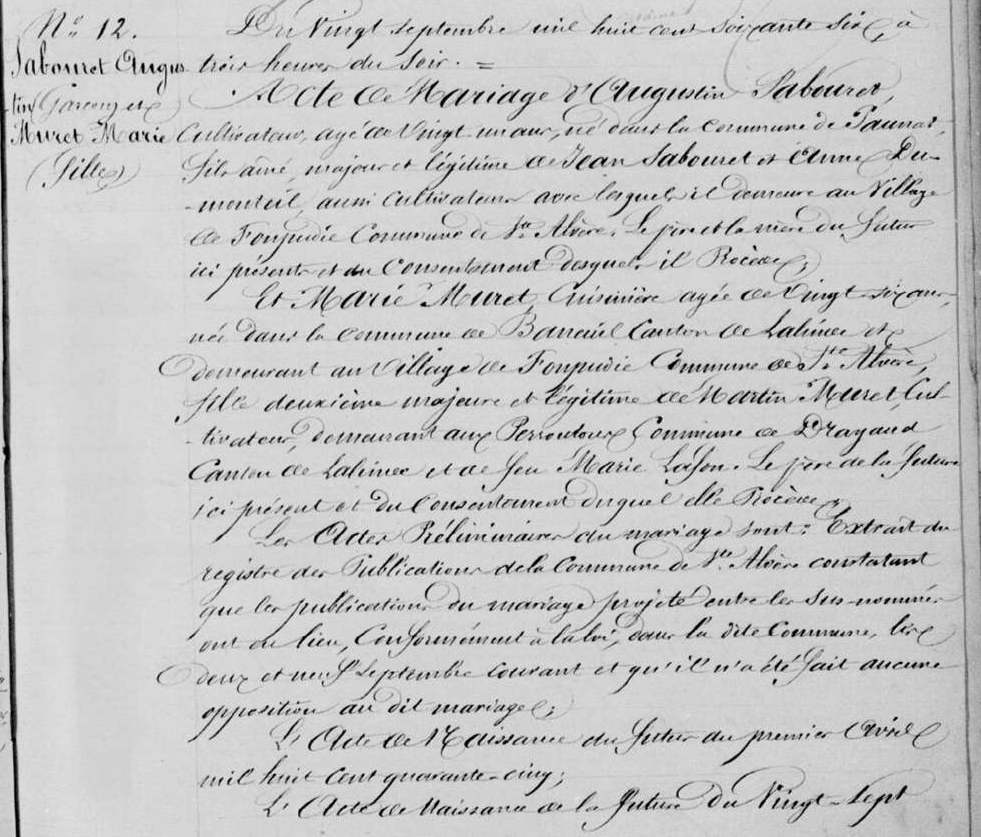 N° 12.
Sabouret Augus
tin (Garçon) et
Muret Marie
(fille)
Du Vingt septembre mil huit cent soixante six, à
trois heures du soir. =
Acte de Mariage d'Augustin Sabouret,
Cultivateur, agé de Vingt-un ans, né dans la commune de Paunat,
fils ainé, majeur et légitime de Jean Sabouret et Anne Du-
-monteil, aussi Cultivateurs avec lesquels il demeure au Village
de Fonpudie Commune de Ste Alvère. Le père et la mère du futur
ici présents et du Consentement desquels il Procède;
Et Marie Muret, Cuisinière agée de Vingt-six ans,
née dans la commune de Baneuil Canton de Lalinde et
demeurant au Village de Fonpudie Commune de Ste Alvère,
fille deuxième majeure et légitime de Martin Muret, Cul-
-tivateur, demeurant aux Commune de Drayaud
Canton de Lalinde et de feu Marie Lafon. Le père de la future
ici présent et du Consentement duquel elle Procède;
Les Actes Préliminaires du mariage sont: Extrait du
registre des Publications de la Commune de Ste Alvère constatant
que les publications du mariage projeté entre les sus-nommés
ont eu lieu, Conformément à la loi, dans la dite Commune, les
deux et neuf Septembre courant et qu'il n'a été fait aucune
opposition au dit mariage;
L'Acte de Naissance du futur du premier Avril
mil huit cent quarante-cinq;
L'Acte de Naissance de la future du Vingt-Sept